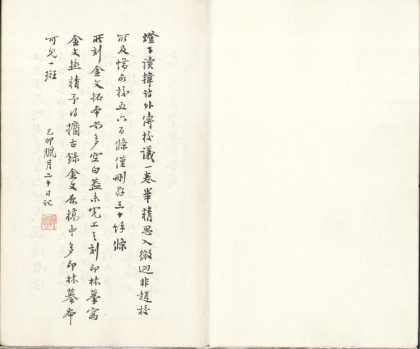 燈下讀韓詩外傳校議一卷畢精思入微迥非趙校
所及惜所校五六百條僅刪存三十餘條
所刻金文拓本尚多空白蓋未完工之刻印林摹寫
金文極精予得攈古錄金文原稿中多印林摹本
可見一斑
乙卯臘月二十日記